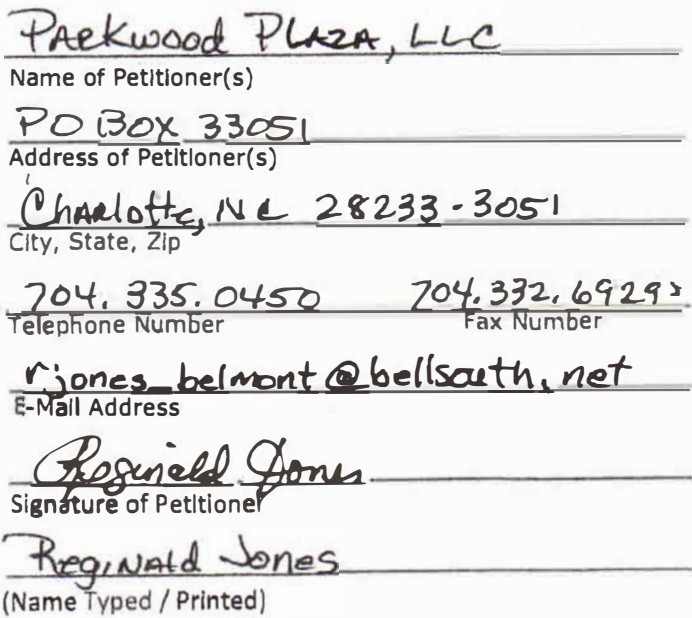 Parkwood Plaza, LLC
Name of Petitioner(s)
PO Box 33051
Address of Petitioner(s)
Charlotte, NC 28233-3051
City, State, Zip
704.335.0450 704.332.6929
Telephone Number Fax Number
rjones_belmont@bellsouth.net
E-Mail Address
Reginald Jones
Signature of Petitioner
Reginald Jones
(Name Typed / Printed)